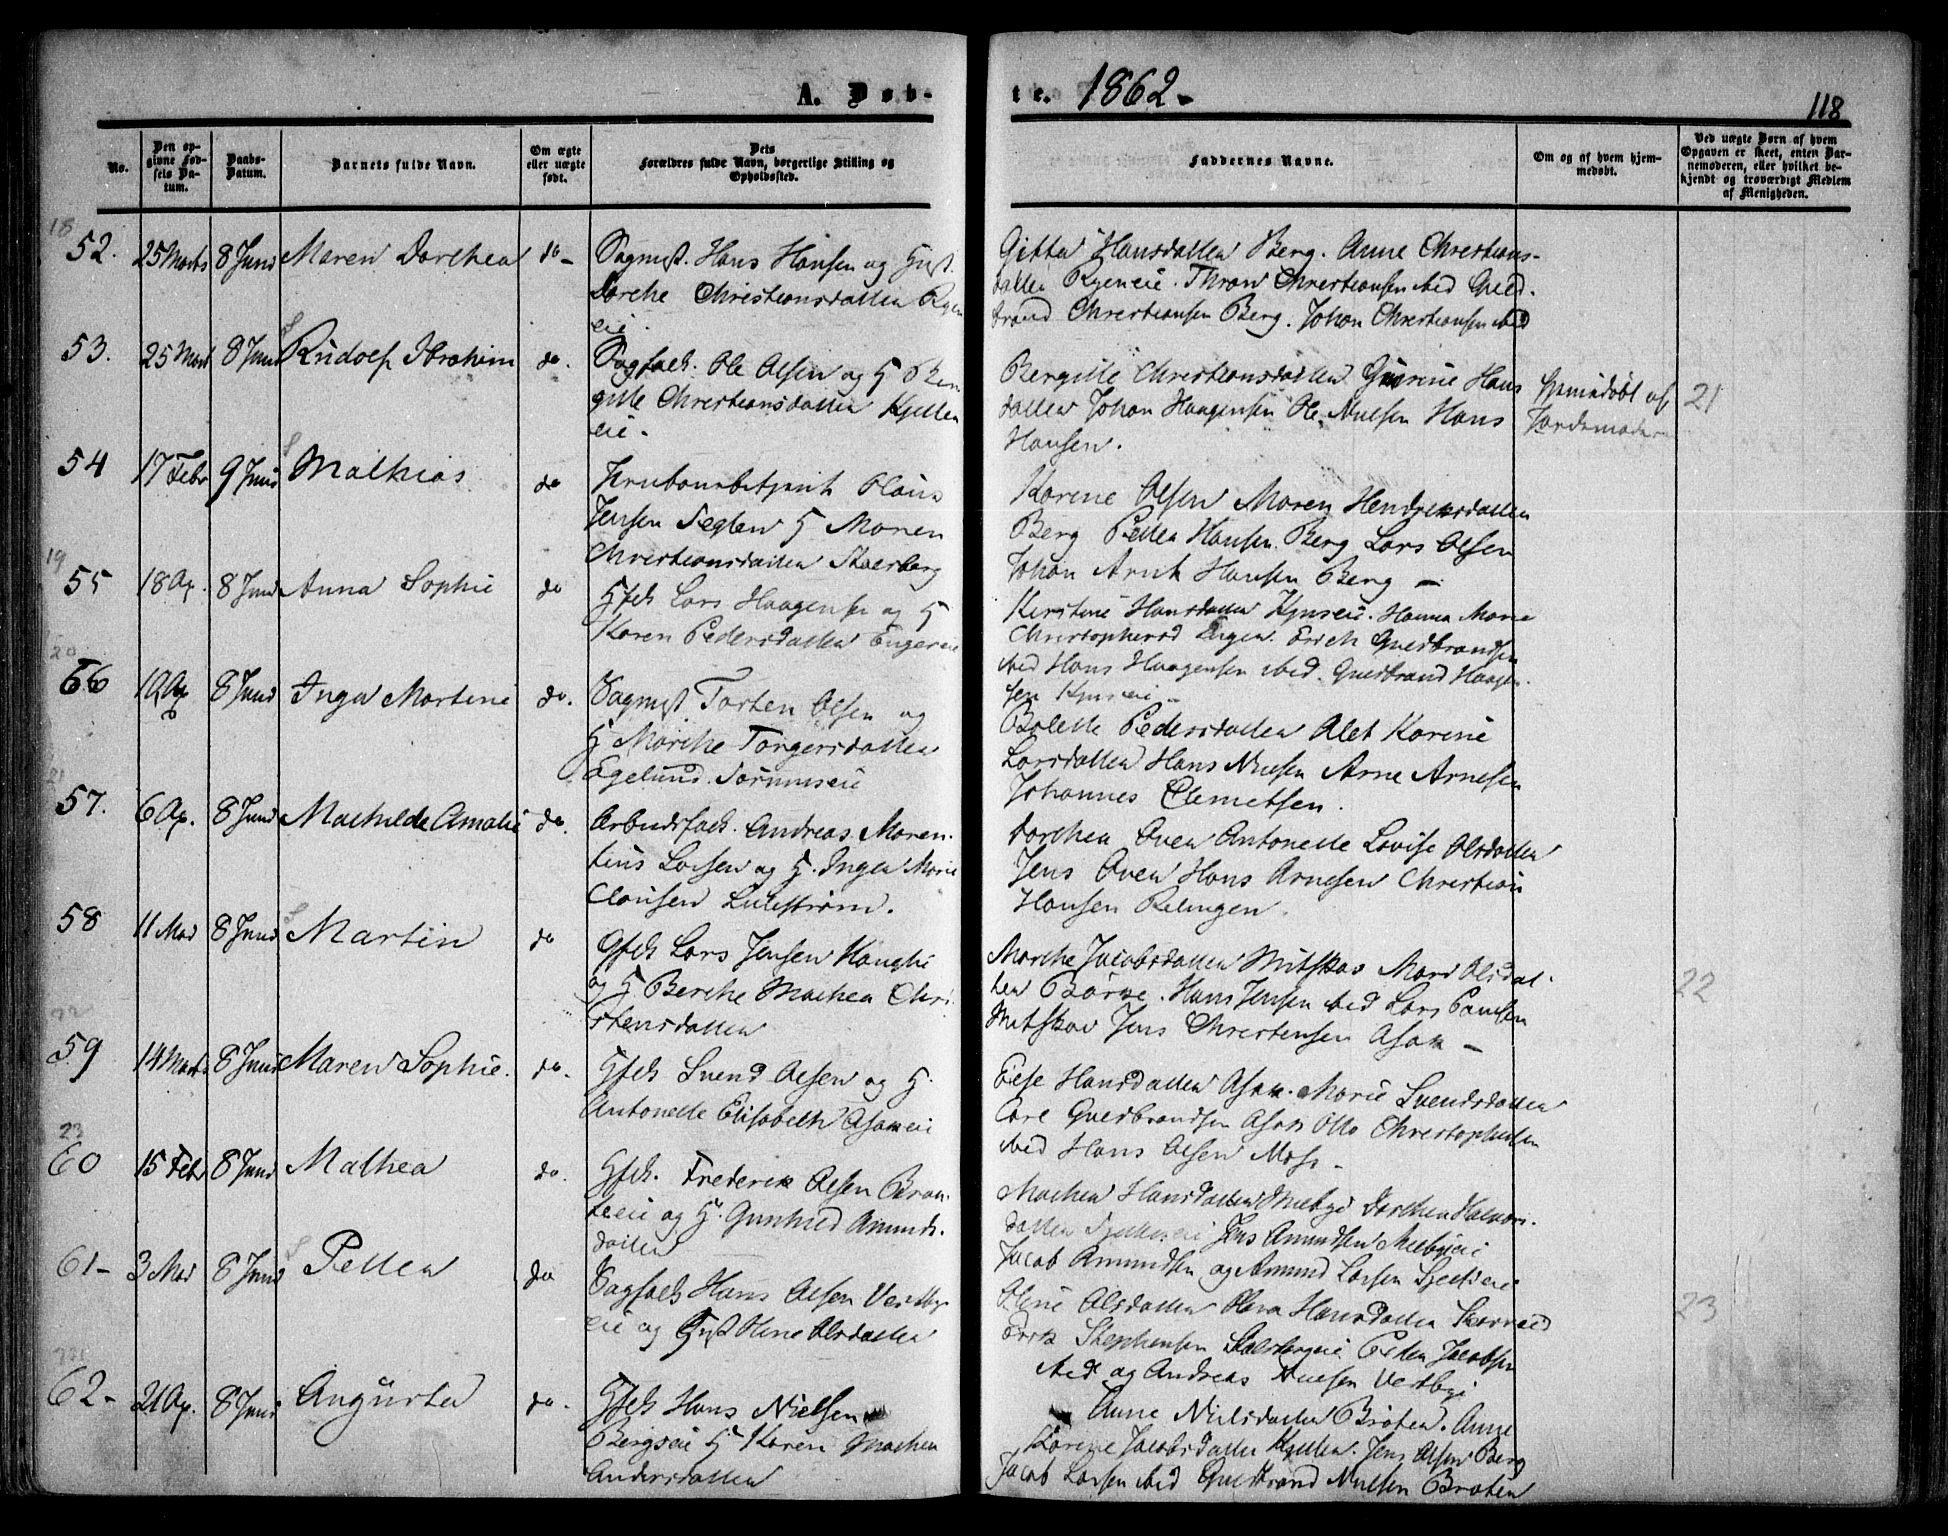 A. Døb-
te. 1862-
118
No.
Den op-
givne Fød-
sels Da-
tum.
Daabs-
Datum.
Barnets fulde Navn.
Om ægte
eller uægte
født.
Dets
Forældres fulde Navn, borgerlige Stilling og
Opholdssted.
Faddernes Navne.
Om og af hvem hjem-
medøbt.
Ved uægte Børn af hvem
Opgaven er skeet, enten Bar-
nemoderen, eller hvilket be-
kjendt og troværdigt Medlem
af Menigheden.
18
52. 25 Marts 8 Juni Maren Dorthea do-
Hans Hansen og Hust.
Dorthe Christiansdatter Ryen
eie.
Gitter Hansdatter Berg. Anne Christians-
datter Ryeneie. Thron Christiansen ibid Guld-
brand Christiansen Berg. Johan Christiansen ibid
53. 25 Mart 8 Juni Rudolf Ibrahim do.
Sagfack. Ole Olsen og H Ber
gitte Christiansdatter Kjellen
eie.
Bergitte Christiansdatter Gurine Hans
datter Johan Haagensen Ole Nielsen Hans
Hansen.
hjemmedøbt af
Jordemoder
21
54 17 Febr 9 Juni Mathias do
Jensen H Maren
Christiansdatter Stalsberg
Karine Olsen Maren Hendriksdatter
Berg Petter Hansen Berg Lars Olsen
Johan Arnt Hansen Berg -
19
55 18 Ap. 8 Juni Anna Sophie do
Gfck Lars Haagensen og H
Karen Pedersdatter Engereie
Kirstine Hansdatter Hanna Marie
Christophersd Engen. Erich Guldbrandsen
ibid Hans Haagensen ibid. Guldbrand Haagen-
sen
20
56 10 Ap 8 Juni Inga Martine do.
Torsten Olsen og
H Marthe Torgersdatter
Egelund.
Bolette Pedersdatter Alet Karine
Larsdatter Hans Nielsen Arne Arnesen
Johannes Clemetsen.
21
57. 6 Ap. 8 Juni Mathilde Amalie do.
Arbeidsfack. Andreas Maren-
tius Larsen og H. Inger Marie
Clausen Lillestrøm.
Dorthea Oven Antonette Lovise Olsdatter
Jens Oven Hans Arnesen Christian
Hansen Relingen.
58 11 Mai 8 Juni Martin do
Gfck Lars Jensen
og H Berthe Mathea Chri-
stensdatter
Marthe Jacobsdatter Mitskog Mari Olsdat-
ter Børke. Hans Jensen ibid Lars Paulsen
Mitskov Jens Christensen Asak -
22
22
59 14 Marts 8 Juni Maren Sophie. do.
Gfck Svend Olsen og H.
Antonette Elisabeth Asakeie
Else Hansdatter Asak. Marie Svendsdatter
Carl Guldbrandsen Asak Otto Christophersen
ibid Hans Olsen Moss -
23
60 15 Febr 8 Juni Mathea do.
Gfck. Frederik Olsen Bra-
teeie og H. Gunhild Amunds-
datter
Mathea Hansdatter Melbye Dorthea Halvors-
datter Jens Amundsen Melbyeie
Jacob Amundsen og Amund Larsen
61- 3 Mai 8 Juni Petter do
Sagfack Hans Olsen Vestby
eie og Hust Oline Olsdatter
Oline Olsdatter Olava Hansdatter
Erik Stephensen Stalsbergeie Peder Jacobsen
ibid og Andreas Nielsen Vestbye
23
62- 21 Ap. 8 Juni Augusta do.
Gfck Hans Nielsen
Bergseie H Karen Mathea
Andersdatter
Anne Nielsdatter Braten. Anne
Karine Jacobsdatter Kjellen. Jens Olsen Berg
Jacob Larsen ibid Guldbrand Nielsen Braten